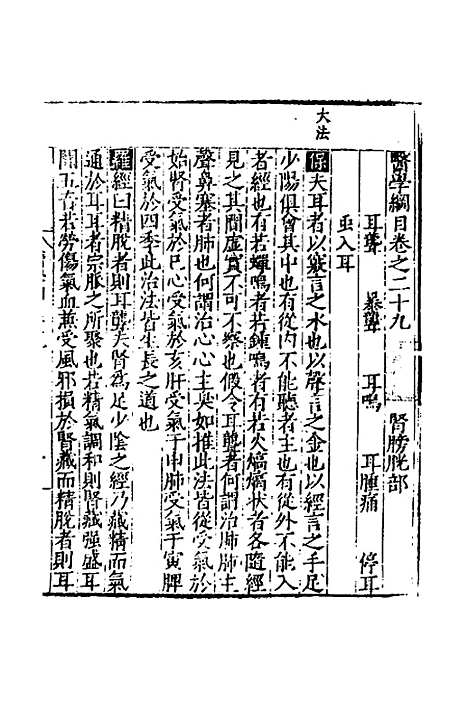 醫學綱目卷之二十九　腎膀胱部
耳聾　暴聾　耳鳴　耳腫痛　停耳
虫入耳
大法
保夫耳者以竅言之水也以聲言之金也以經言之手足
少陽俱會其中也有從内不能聽者主也有從外不能入
者經也有若蟬鳴者若鍾鳴者有若火熇熇狀者各隨經
見之其間虛實不可不察也假令耳聾者何謂治肺肺主
聲鼻塞者肺也何謂治心心主臭如推此法皆從受氣於
始腎受氣於巳心受氣於亥肝受氣于申肺受氣于寅脾
受氣於四季此治法皆生長之道也
羅經曰精脫者則耳聾夫腎爲足少陰之經乃藏精而氣
通於耳耳者宗脈之所聚也若精氣調和則腎藏强盛耳
聞五音若勞傷氣血兼受風邪損於腎藏而精脫者則耳